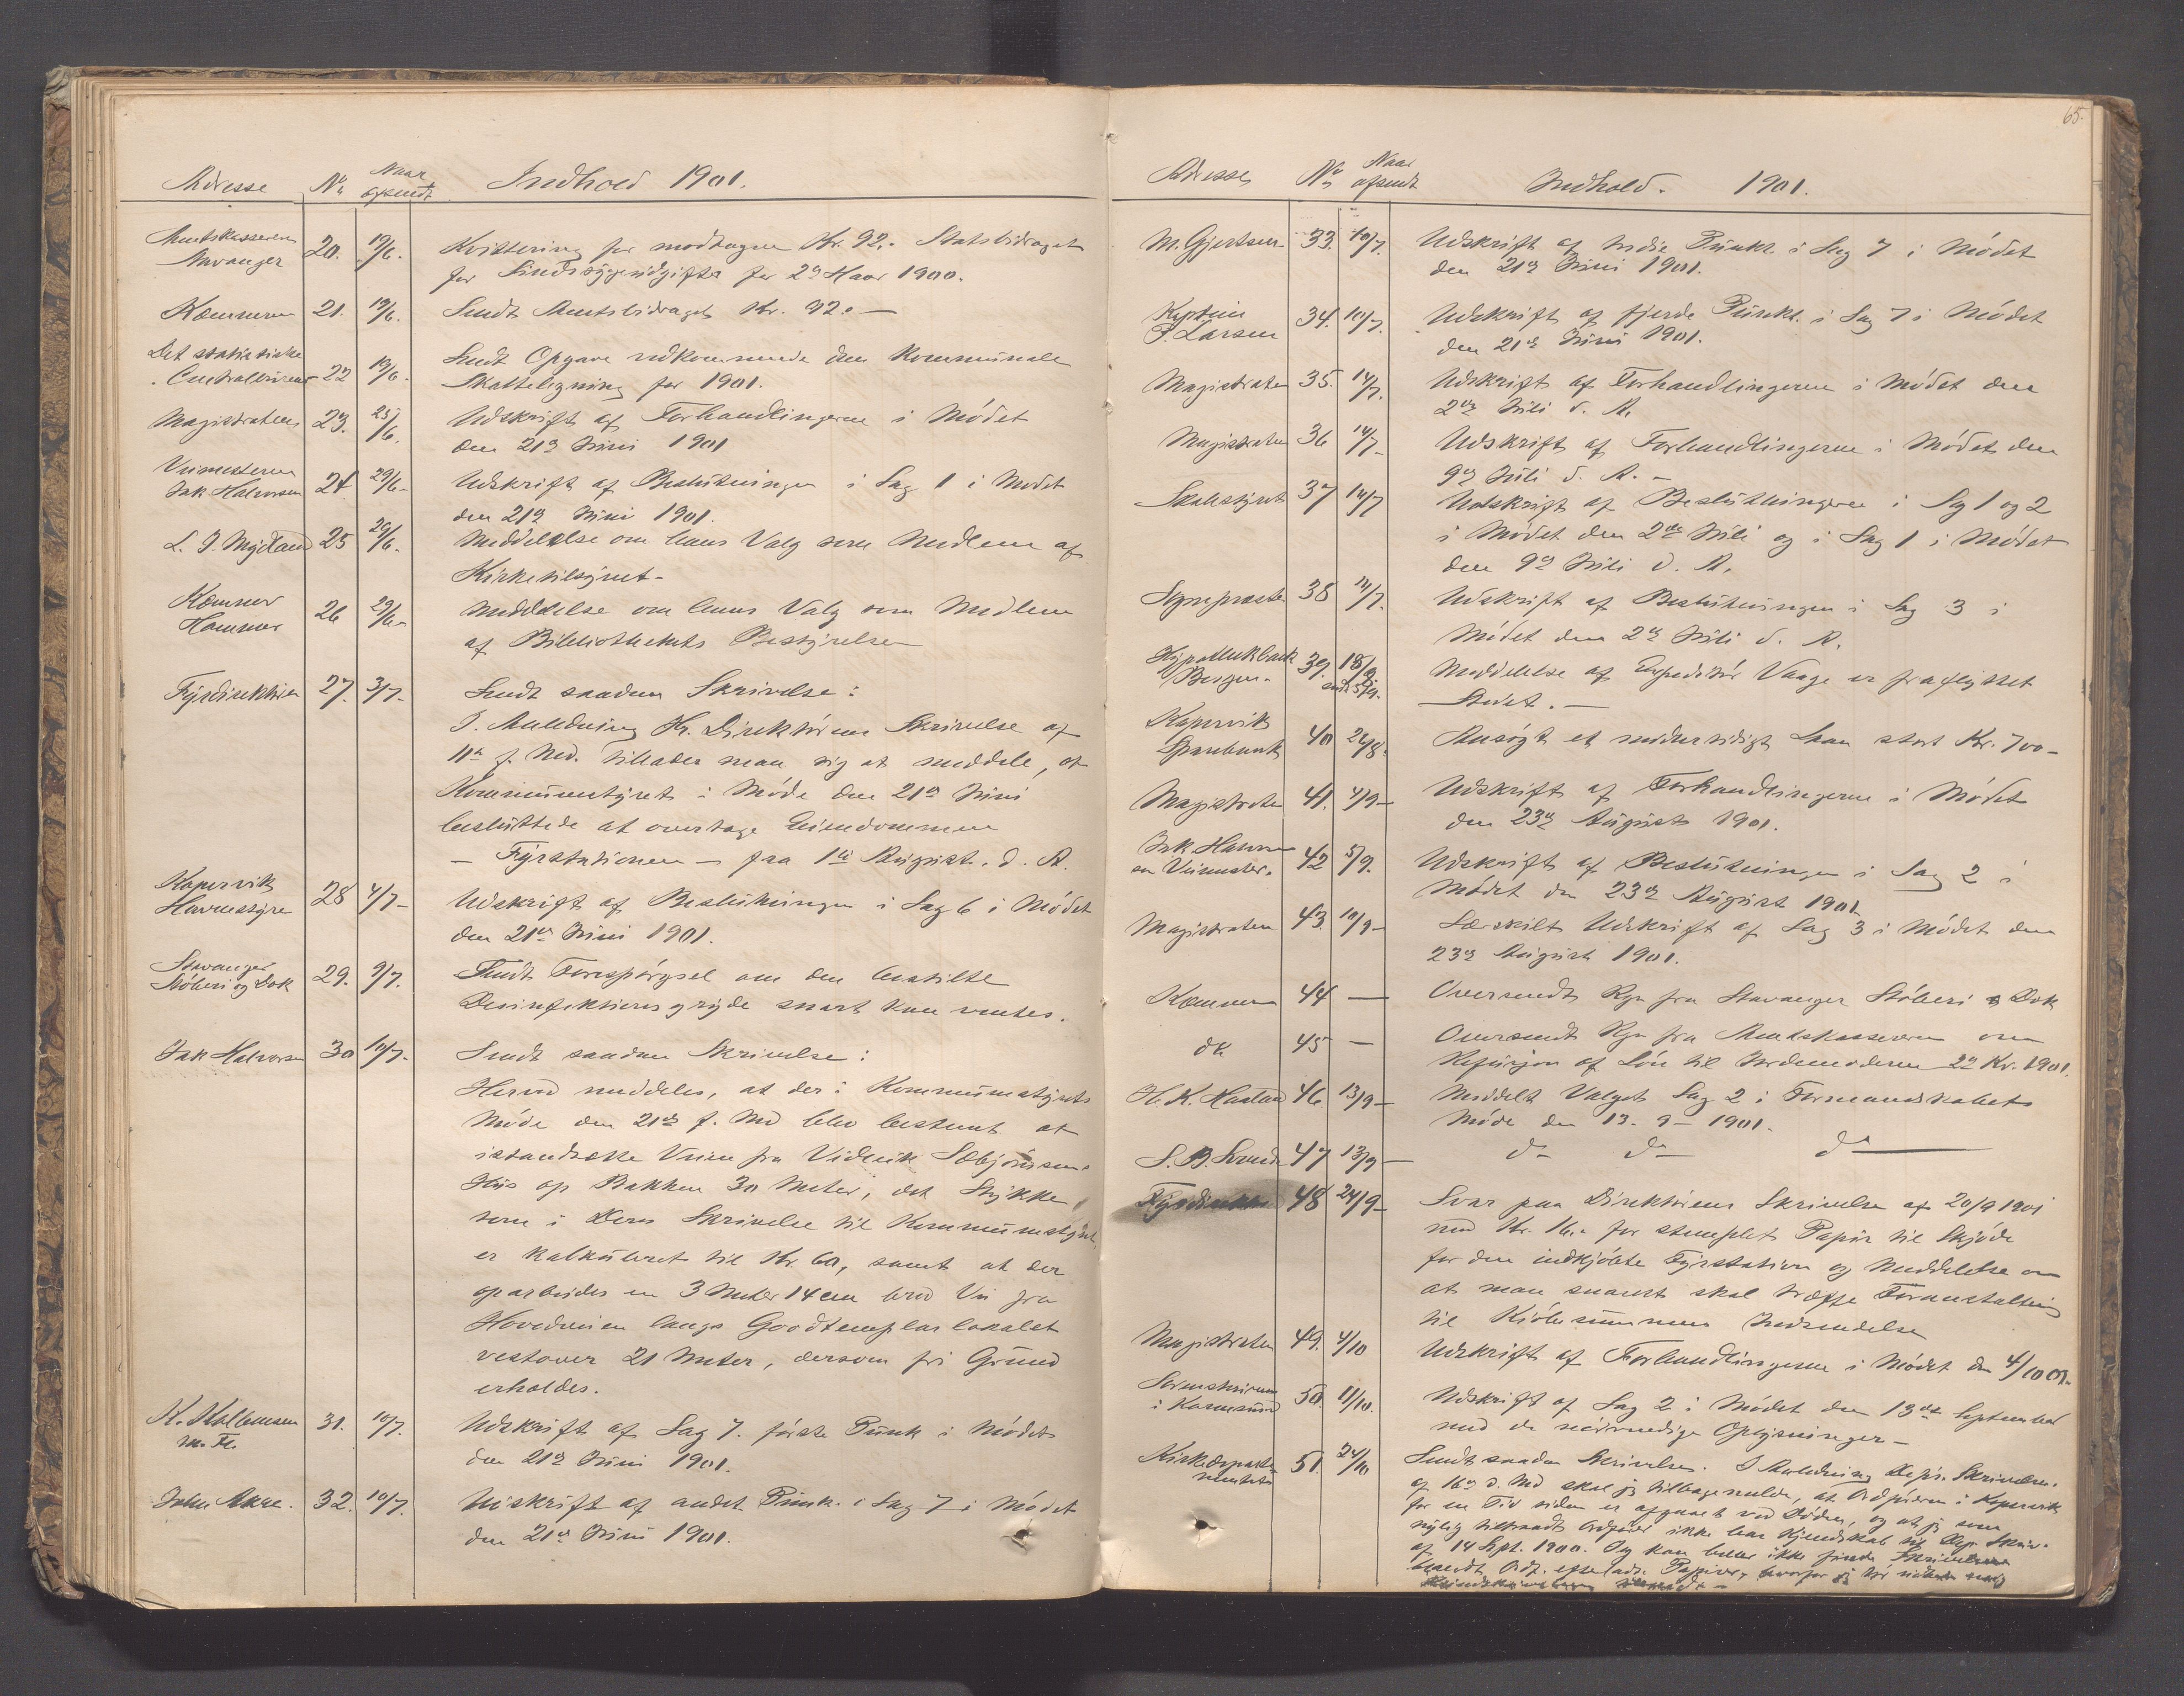 Adresse No Naar afsendt Indhold 1901.
Amtskassereren 20. 19/6. Kvittering for modtagne Kr. 92.- Statsbidraget
for Sindssygeudgifter for 2det Haar 1900.
Kæmneren 21. 19/6. Sendt Amtsbidraget Kr. 92.-
Det statistiske
Centralbureau 22 19/6. Sendt Opgave vedkommende den Kommunale
Skatteligning for 1901.
Magistraten 23. 25/6. Udskrift af Forhandlingerne i Mödet
den 21de Juni 1901
Veimesteren
Jak. Halvorsen 24. 29/6- Udskrift af Beslutningen i Sag 1 i Mödet
den 21de Juni 1901.
L. J. Mydland 25 29/6. Meddelelse om hans Valg som Medlem af
Kirketilsynet-
Kæmner
Hammer 26 29/6- Meddelelse om hans Valg som Medlem
af Bibliothekets Bestyrelse
Fyrdirektören 27. 3/7- Sendt saadan Skrivelse:
I Anledning Hr. Direktörens Skrivelse af
11te f. Md. tillader man sig at meddele, at
Kommunestyret i Möde den 21de Juni
besluttede at overtage Eiendommen
- Fyrstationen - fra 1ste August. d. A.
Kopervik
Havnestyre 28 4/7- Udskrift af Beslutningen i Sag 6 i Mödet
den 21de Juni 1901.
Stavanger
Stöberi og Dok 29. 9/7. Sendt Forespörgsel om den bestilte
Desinfektionsgryde snart kan ventes.
Jak Halvorsen 30 10/7- Sendt saadan Skrivelse:
Herved meddeles, at der i Kommunestyrets
Möde den 21de f. Md blev bestemt at
istandsætte Veien fra Viderik Sæbjörnsens
Hus op Bakken 30 Meter, det Stykke
som i Deres Skrivelse til Kommunestyret
er kalkuleret til Kr. 60, samt at der
oparbeides en 3 Meter 14 cm bred Vei fra
Hovedveien langs Goodtemplarlokalet
vestover 21 Meter, dersom fri Grund
erholdes.
K. Kolbensen
m. Fl. 31. 10/7. Udskrift af Sag 7. förste Punk i Mödet
den 21de Juni 1901.
John Aase. 32. 10/7. Udskrift af andet Punk. i Sag 7 i Mödet
den 21de Juni 1901.
65.
Adresse No Naar afsendt Indhold. 1901.
M. Gjertsen 33. 10/7. Udskrift af tredie Punkt i Sag 7 i Mödet
den 21de Juni 1901.
Kaptein
P. Larsen 34. 10/7. Udskrift af fjerde Punkt. i Sag 7 i Mödet
den 21de Juni 1901.
Magistraten 35. 14/7. Udskrift af Forhandlingerne i Mödet den
2den Juli d. A.
Magistraten 36 14/7- Udskrift af Forhandlingerne i Mödet den
9de Juli d. A. -
Skolestyret 37 14/7 Udskrift af Beslutningerne i Sag 1 og 2
i Mödet den 2den Juli og i Sag 1 i Mödet
den 9de Juli d. A.
Sognepræsten 38 14/7. Udskrift af Beslutningen i Sag 3 i
Mödet den 2den Juli d. A.
Hypothekbank
Bergen. 39. 18/8. Meddelelse af Expeditör Vaage er fraflyttet
Stedet. -
Kopervik
Sparebank 40 26/8. Ansögt et midlertidigt Laan stort Kr. 700-
Magistraten 41. 4/9- Udskrift af Forhandlingerne i Mödet
den 23de August 1901.
Jak. Halvorsen
Veimester. 42 5/9. Udskrift af Beslutningen i Sag 2 i
Mödet den 23de August 1901
Magistraten 43. 10/9- Særskilt Udskrift af Sag 3 i Mödet den
23de August 1901.
Kæmner 44 - Oversendt Rgn fra Stavanger Stöberi & Dok
do 45 - Oversendt Rgn fra Amtskassereren om
Refusjon af Lön til Jordemoderen 2det Kv. 1901.
H. K. Hauland 46 13/9- Meddelt Valget Sag 2 i Formandskabets
Möde den 13. 9- 1901.
S. B. Lunde 47 13/9- do do do
Fyrdirektören 48 24/9- Svar paa Direktörens Skrivelse af 20/9 1901
med Kr. 16.- for stemplet Papir til Skjöde
for den indkjöbte Fyrstation og Meddelelse om
at man snarest skal træffe Foranstaltning
til Kjöbesummens Indsendelse
Magistraten 49. 4/10 Udskrift af Forhandlingerne i Mödet den 4/10 01.
Sorenskriveren
i Karmsund 50. 11/10. Udskrift af Sag 2 i Mödet den 13de September
med de nödvendige Oplysninger -
Kirkedeparte-
mentet 51. 24/10 Sendt saadan Skrivelse. I Anledning Dep's. Skrivelse.
af 16de d. Md skal jeg tilbagemelde, at Ordföreren i Kopervik
for en Tid siden er afgaaet ved Döden, og at jeg som
nylig tiltraadt Ordförer ikke har Kjendskab til Dep. Skriv.
af 14 Sept. 1900. Jeg kan heller ikke finde Skrivelsen
blandt Ordf. efterladte Papirer, hvorfor jeg